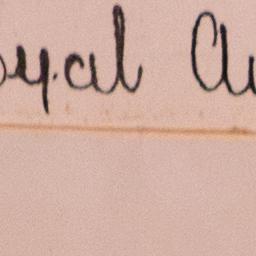 oyal Au